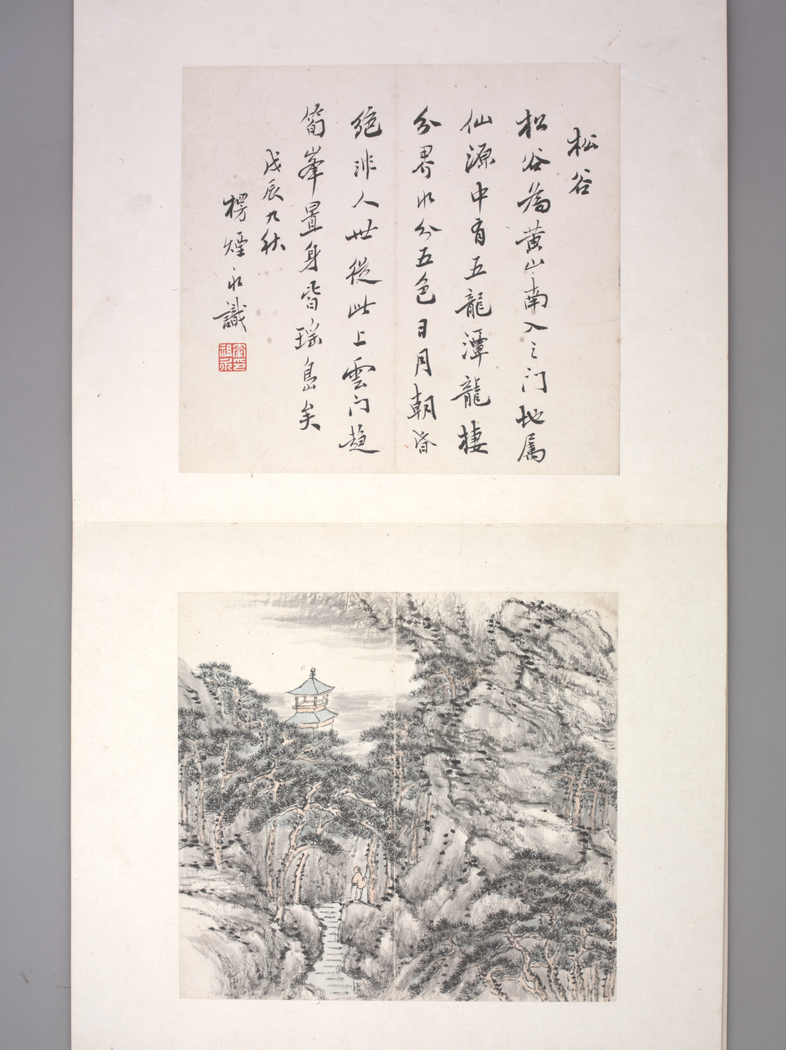 松谷
松谷為黄山南入之门地属
仙源中有五龍潭龍棲
分界水分五色日月朝昏
絶非人世從此上雲门趍
筍峯置身皆瑶島矣
戊辰九秋
楞煙永識
秦印祖永